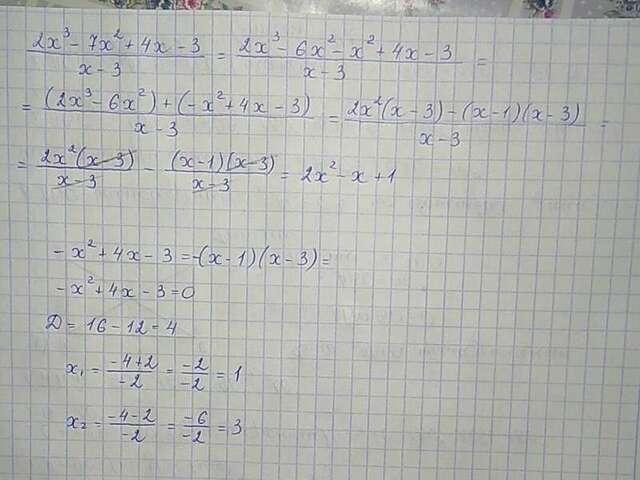 (2x³ - 7x² + 4x - 3)/(x - 3) = (2x³ - 6x² - x² + 4x - 3)/(x - 3) =
= ((2x³ - 6x²) + (-x² + 4x - 3))/(x - 3) = (2x²(x - 3) - (x - 1)(x - 3))/(x - 3) =
= (2x²(x - 3))/(x - 3) - ((x - 1)(x - 3))/(x - 3) = 2x² - x + 1
- x² + 4x - 3 = -(x - 1)(x - 3) =
- x² + 4x - 3 = 0
D = 16 - 12 = 4
x₁ = (-4+2)/(-2) = (-2)/(-2) = 1
x₂ = (-4-2)/(-2) = (-6)/(-2) = 3